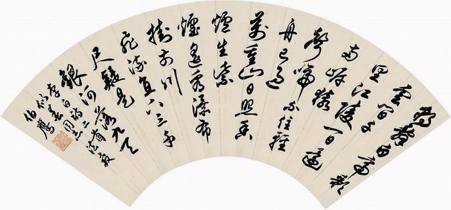 朝辭白帝彩
雲間千
里江陵一日還
兩岸猿
聲啼不住輕
舟已過
萬重山日照香
爐生紫
煙遙看瀑布
掛前川
飛流直下三千
尺疑是
銀河落九天
李白詩二首
伯鷹